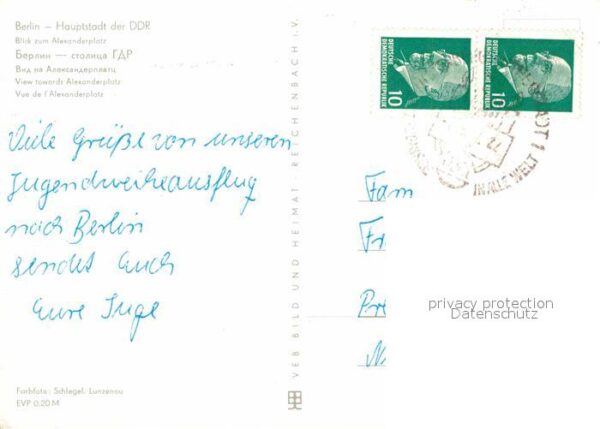 Berlin – Hauptstadt der DDR
Blick zum Alexanderplatz
Берлин — столица ГДР
Вид на Александерплатц
View towards Alexanderplatz
Vue de l'Alexanderplatz
Viele Grüße von unseren
Jugendweiheausflug
nach Berlin
sendet Euch
Eure Inge
Farbfoto: Schlegel, Lunzenau
EVP 0,20 M
VEB BILD UND HEIMAT REICHENBACH i. V.
DEUTSCHE
DEMOKRATISCHE REPUBLIK
10
DEUTSCHE
DEMOKRATISCHE REPUBLIK
10
IN ALLE WELT
Fam
Fr
privacy protection
Datenschutz